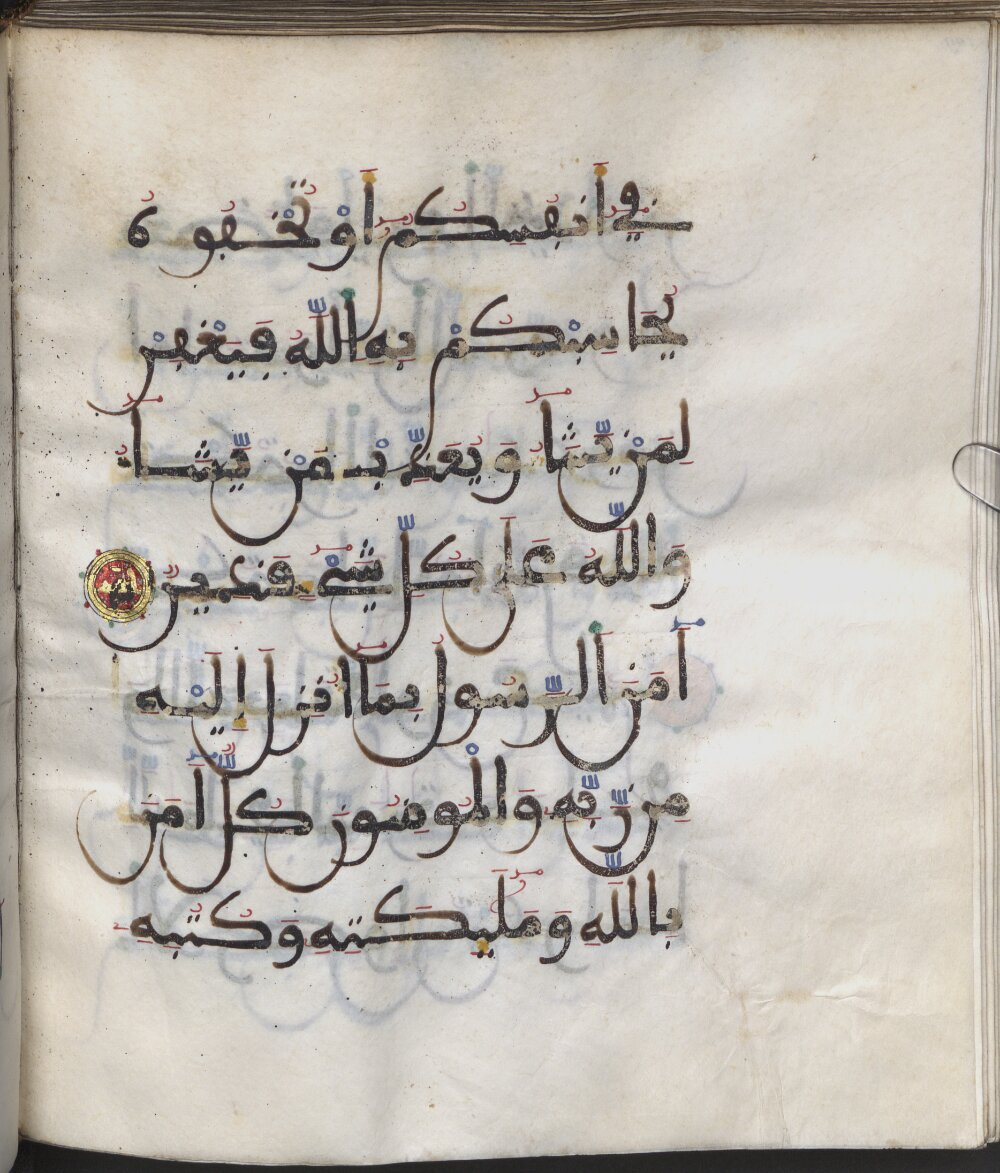 فِے أَنفُسِكُمُۥٓ أَوْ تُخْفُوهُ
يُحَاسِبْكُم بِهِ اِللَّهُ فَيَغْفِرْ
لِمَنْ يَّشَآءُ وَيُعَذِّب مَّنْ يَّشَآءُ
وَاللَّهُ عَلَىٰ كُلِّ شَےْءٖ قَدِيرٌ
ءَامَنَ اَلرَّسُولُ بِمَآ أُنزِلَ إِلَيْهِ
مِن رَّبِّهِ وَالْمُومِنُونَ كُلٌّ ءَامَنَ
بِاللَّهِ وَمَلَٰٓئِكَتِهِ وَكُتُبِهِ